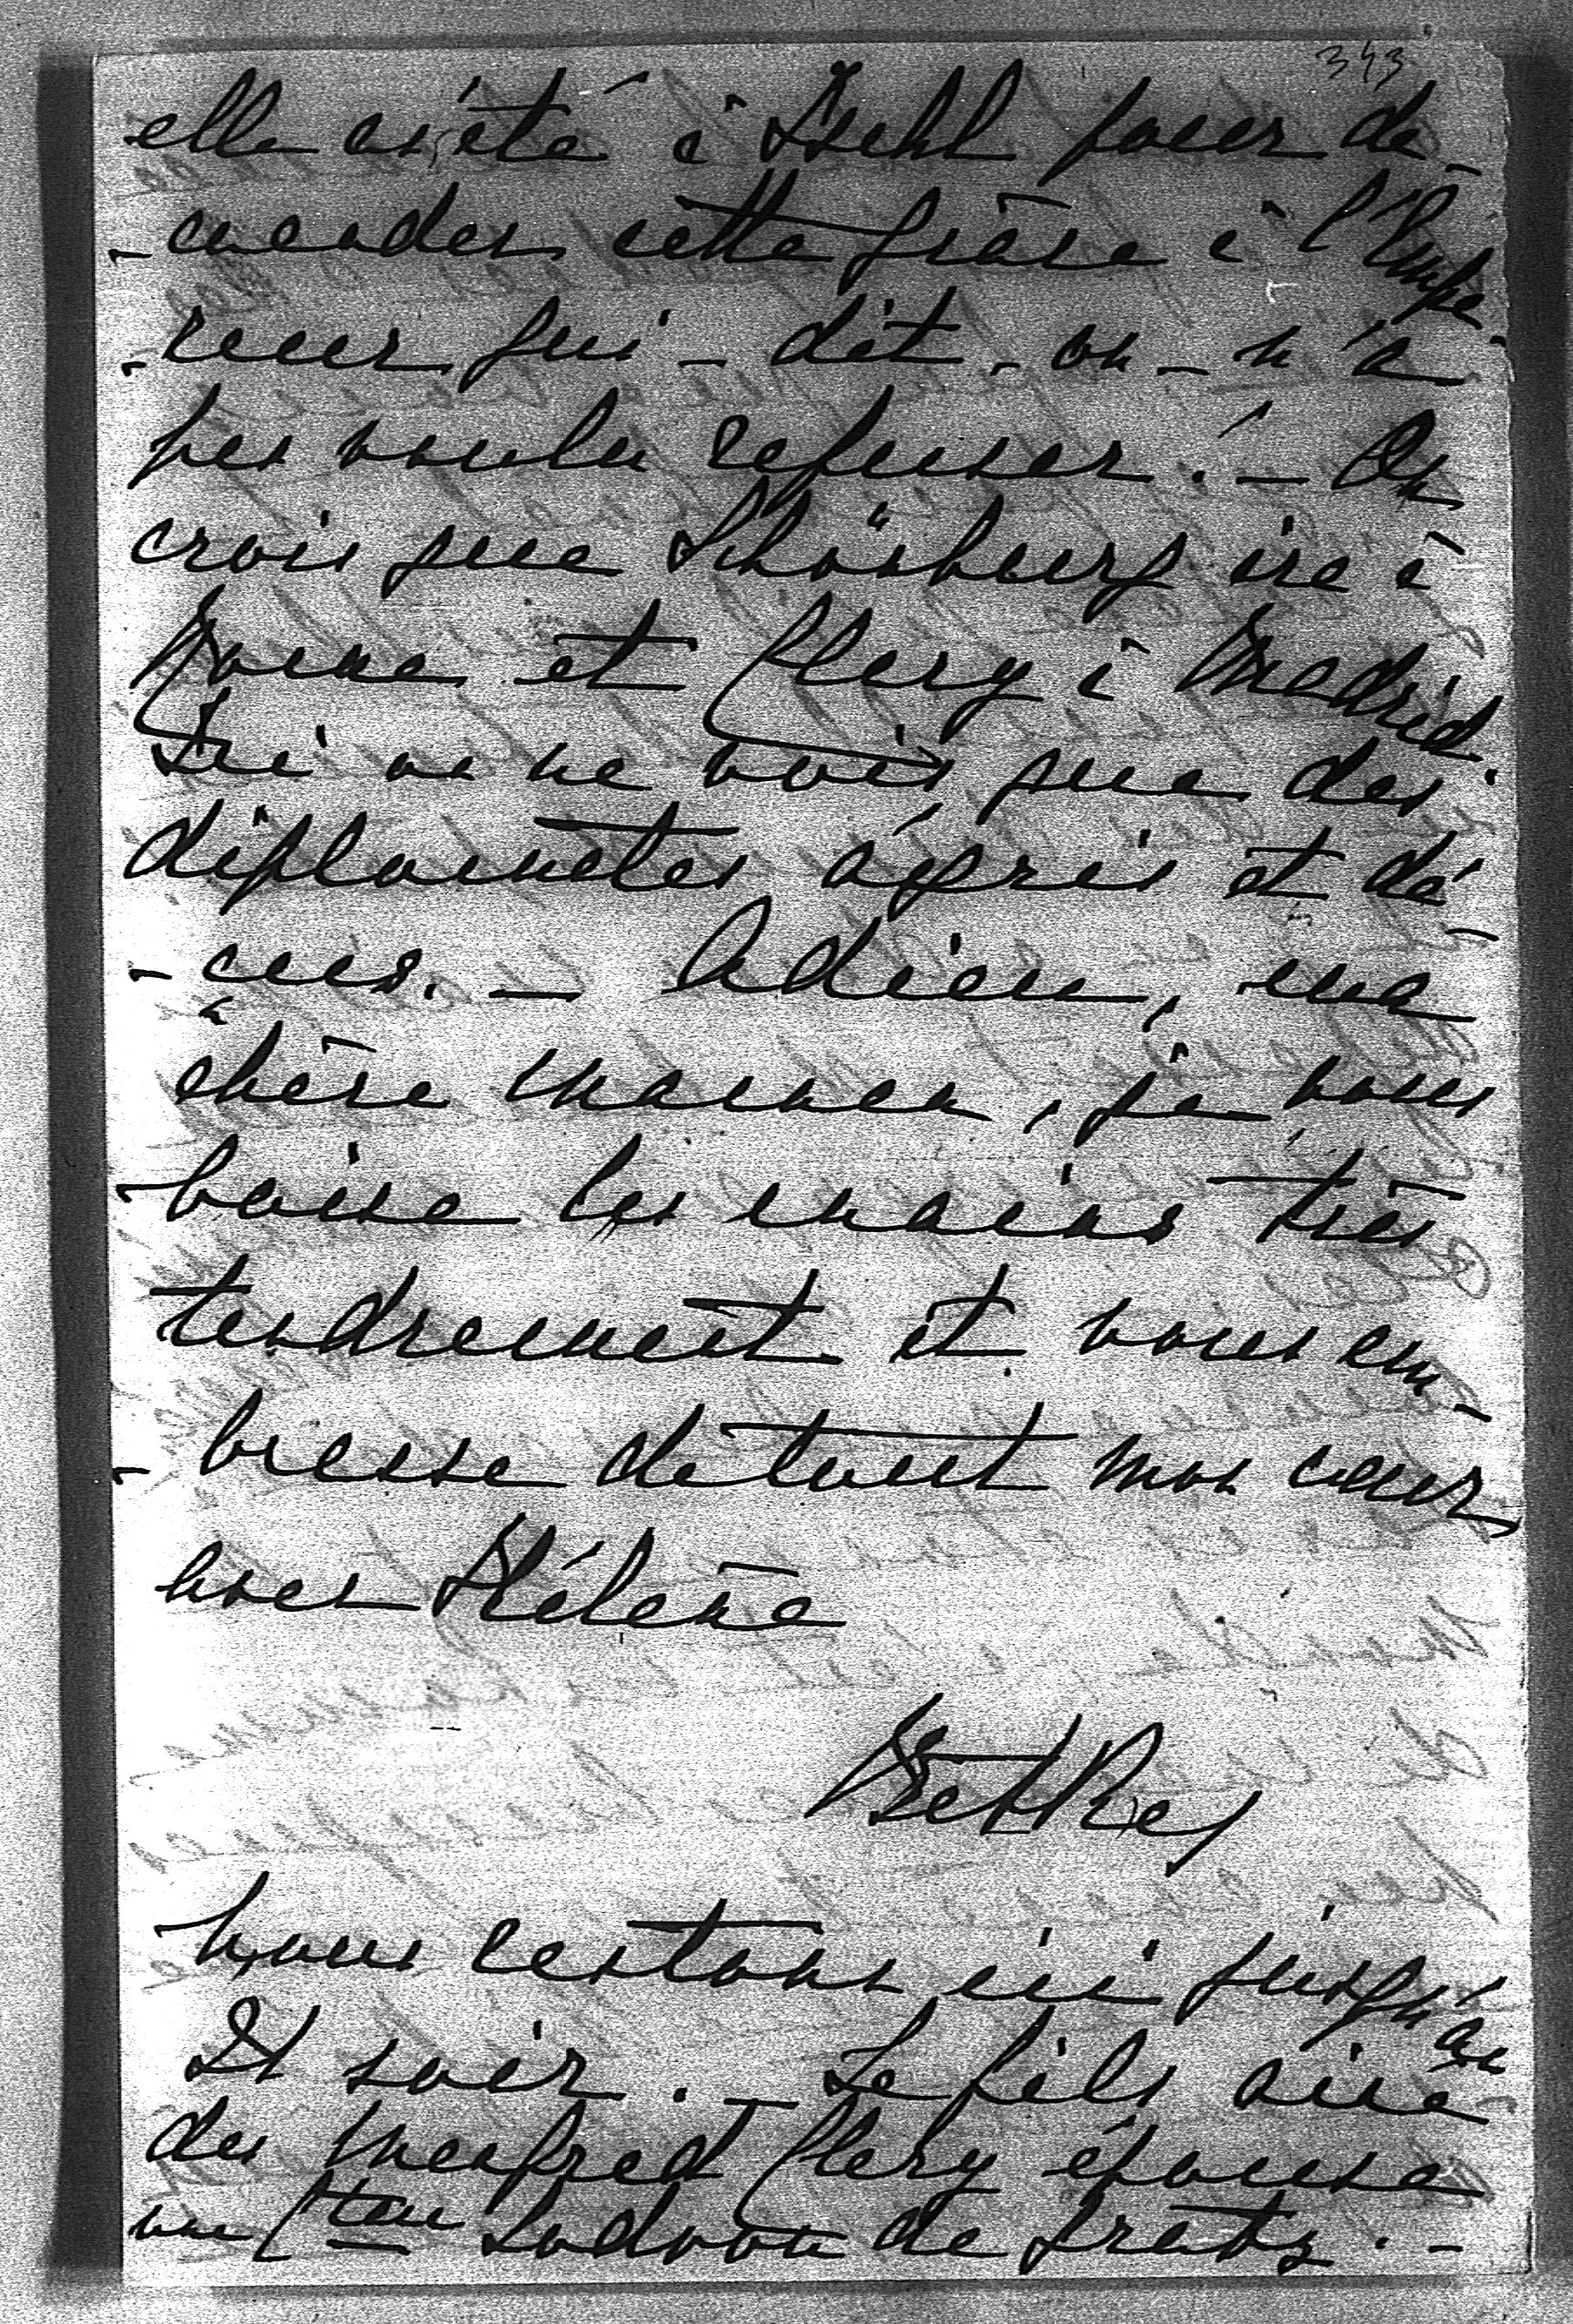 343
elle a été à Ischl pour de-
-mander cette grâce à l'Empe-
-reur qui - dit - on - n'a
pas voulu refuser. - On
crois que Schönburg ira à
Rome et Clary à Madrid.
Ici on ne vois que des
diplomates, aigris et dé-
-çus. - Adieu, ma
chère maman, je vous
baise les mains très
tendrement et vous em-
-brasse de tout mon coeur
votre Hélène
Nous restons ici jusqu'au
21 soir. - Le fils aîné
des Manfred Clary épouse
une Ctesse de Gratz. -